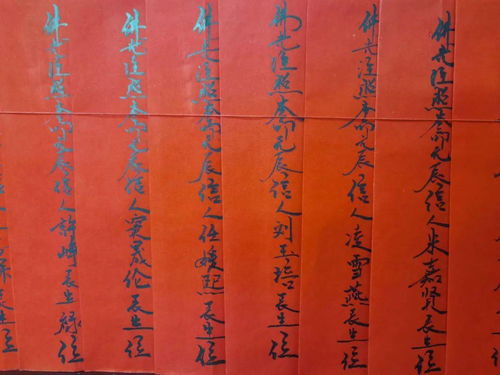 位
佛光注照本命元辰信人米嘉贤长生位
佛光注照本命元辰信人凌雪燕长生位
佛光注照本命元辰信人刘玉培长生位
佛光注照本命元辰信人任媛熙长生位
佛光注照本命元辰信人晟伦长生位
佛光注照本命元辰信人许崎长生禄位
长生位